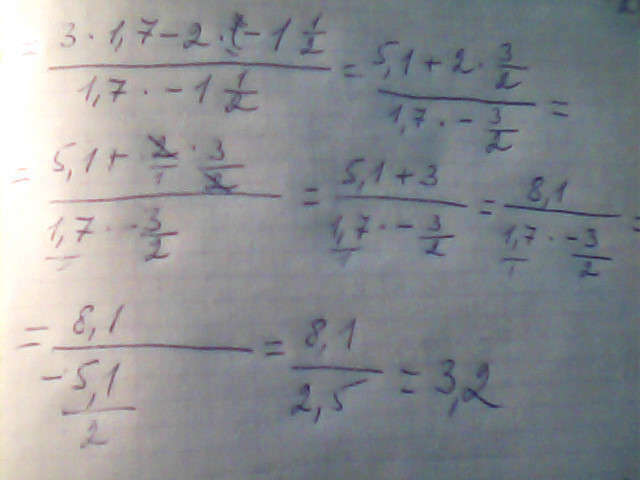 = (3 · 1,7 − 2 · (−1 1/2)) / (1,7 · −1 1/2) = (5,1 + 2 · 3/2) / (1,7 · −3/2) =
= (5,1 + 2/1 · 3/2) / (1,7/1 · −3/2) = (5,1 + 3) / (1,7/1 · −3/2) = 8,1 / (1,7/1 · −3/2) =
= 8,1 / (−5,1/2) = 8,1 / 2,5 = 3,2